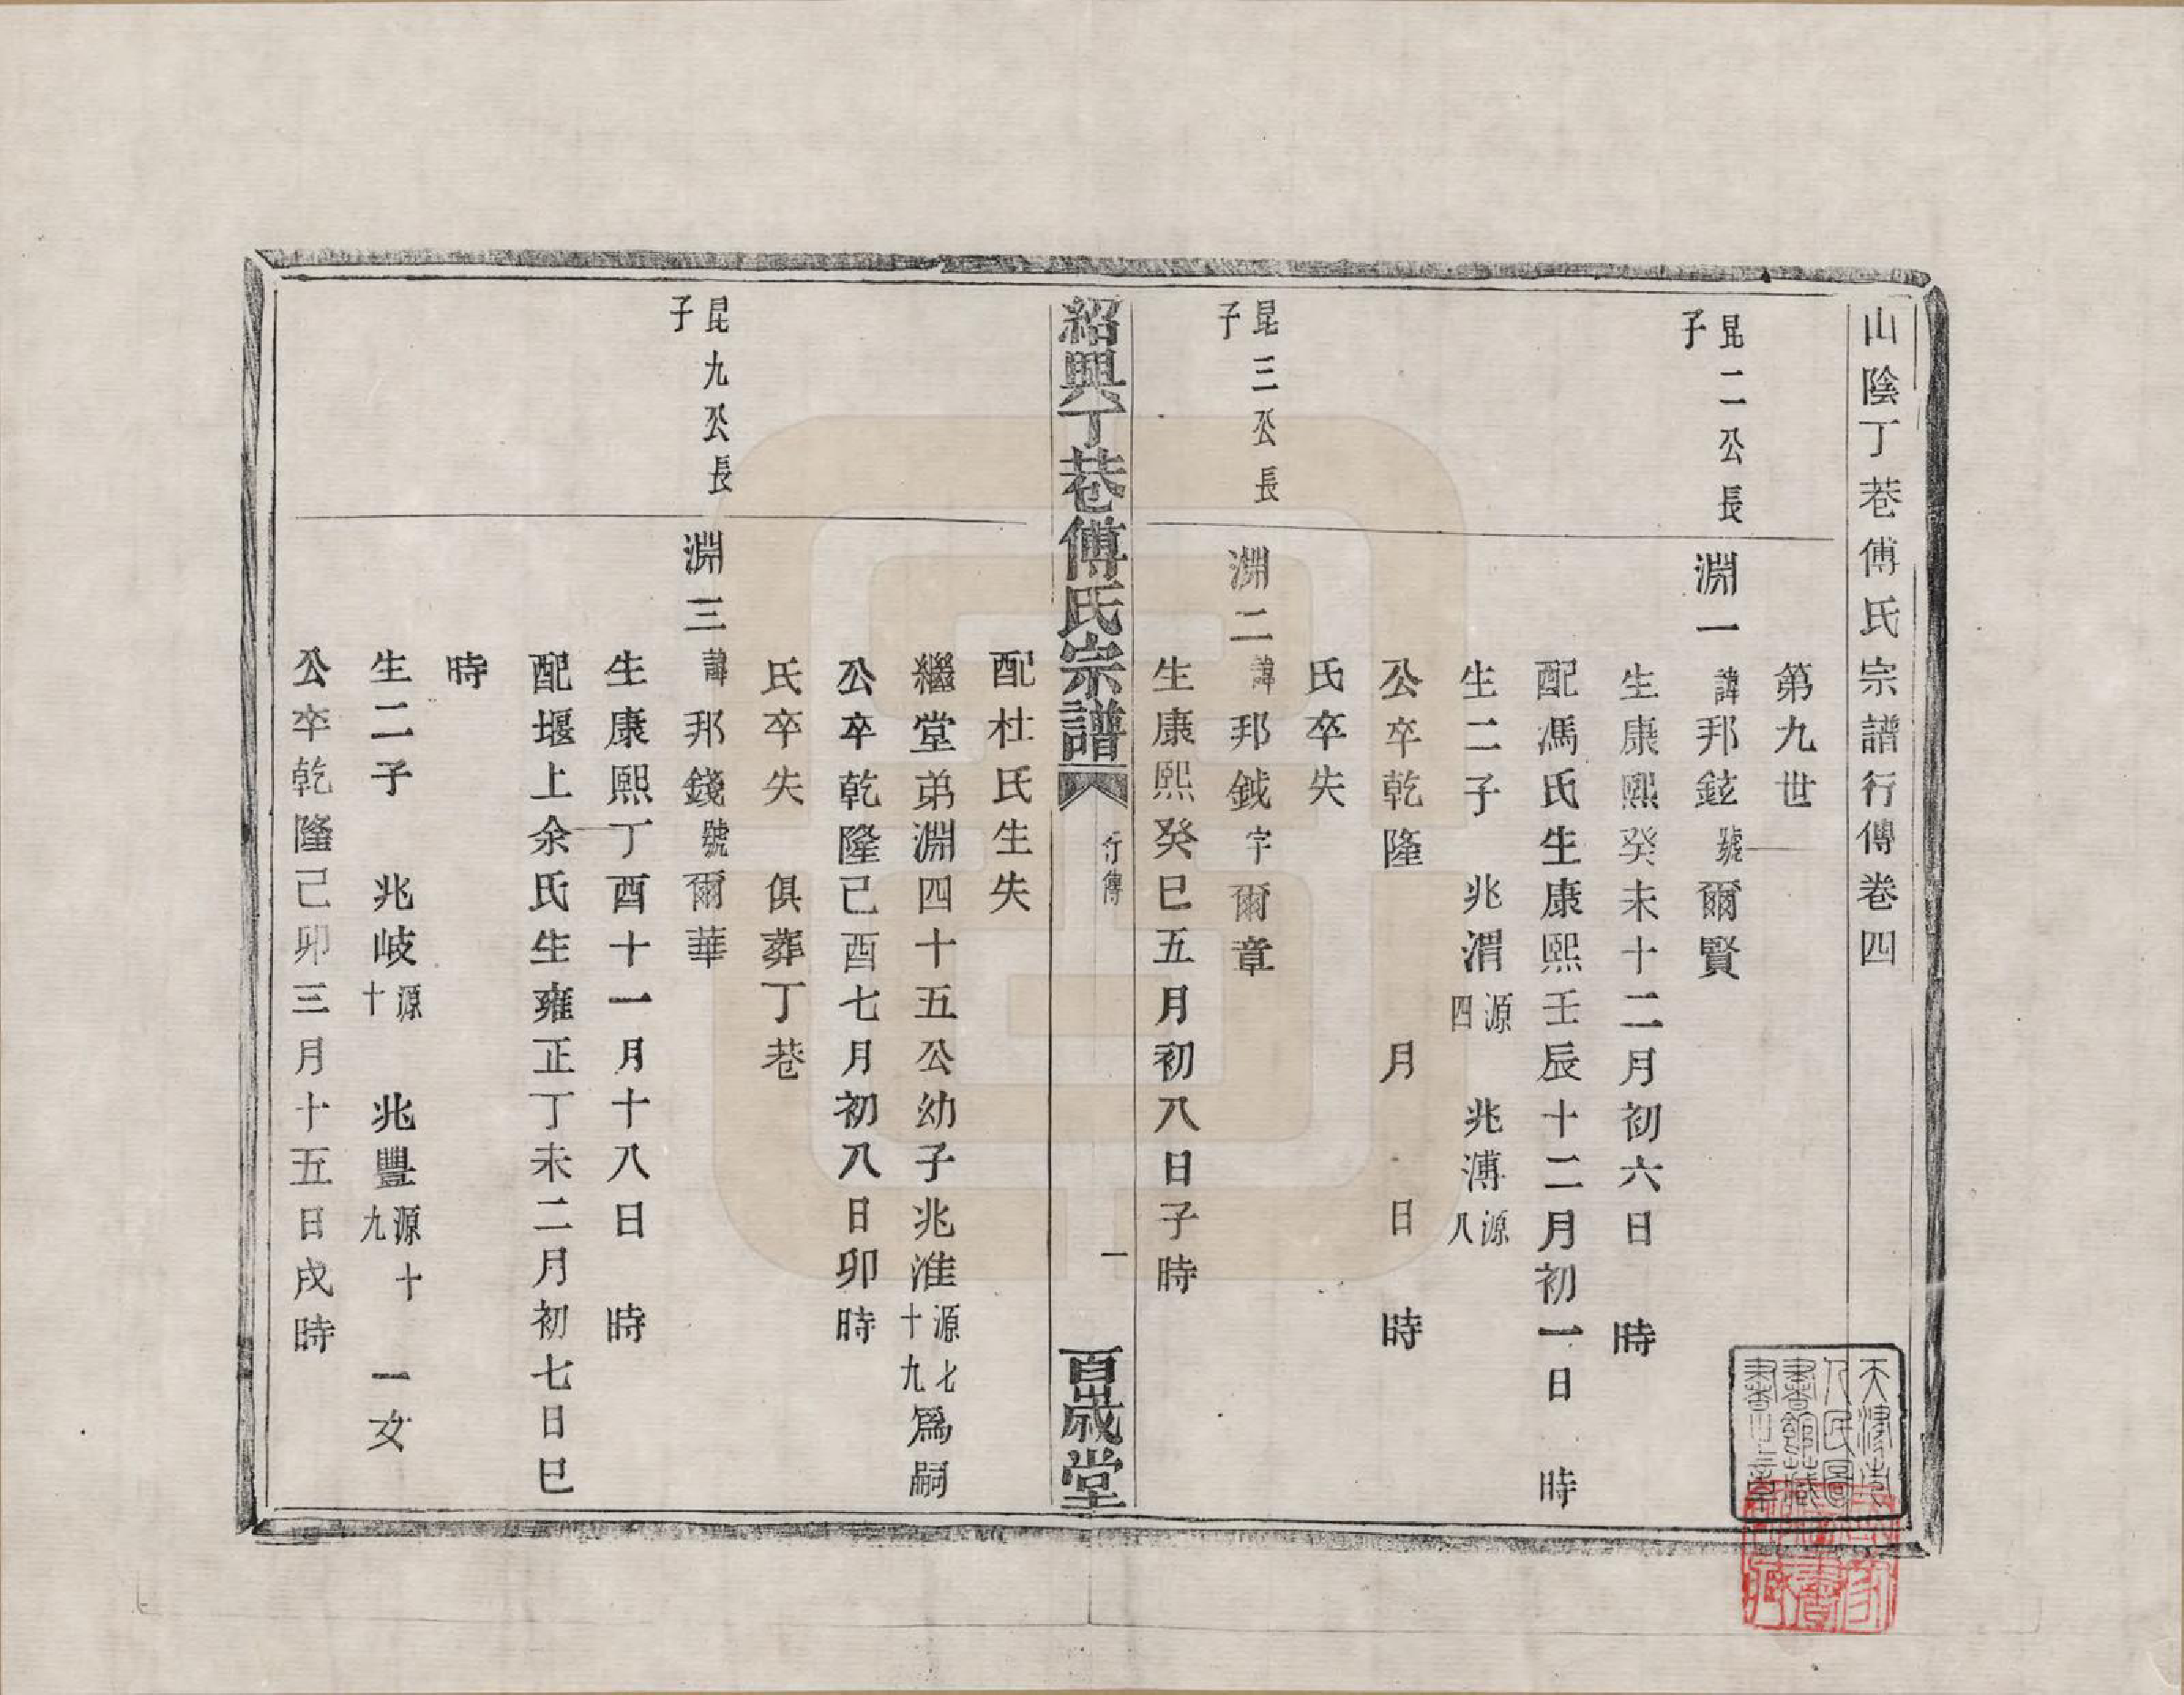 山陰丁巷傅氏宗譜行傳卷四
第九世
昆二公長子
淵一諱邦鉉號爾賢
生康熙癸未十二月初六日 時
配馮氏生康熙壬辰十二月初一日 時
生二子 兆渭源四 兆溥源八
公卒乾隆 月 日 時
氏卒失
昆三公長子
淵二諱邦鉞字爾章
生康熙癸巳五月初八日子時
紹興丁巷傅氏宗譜 行傳 一 百歲堂
配杜氏生失
繼堂弟淵四十五公幼子兆淮源七十九爲嗣
公卒乾隆己酉七月初八日卯時
氏卒失 俱葬丁巷
昆九公長子
淵三諱邦錢號爾華
生康熙丁酉十一月十八日 時
配堰上余氏生雍正丁未二月初七日巳
時
生二子 兆岐源十 兆豐源十九 一女
公卒乾隆己卯三月十五日戌時
天津市
人民圖
書館藏